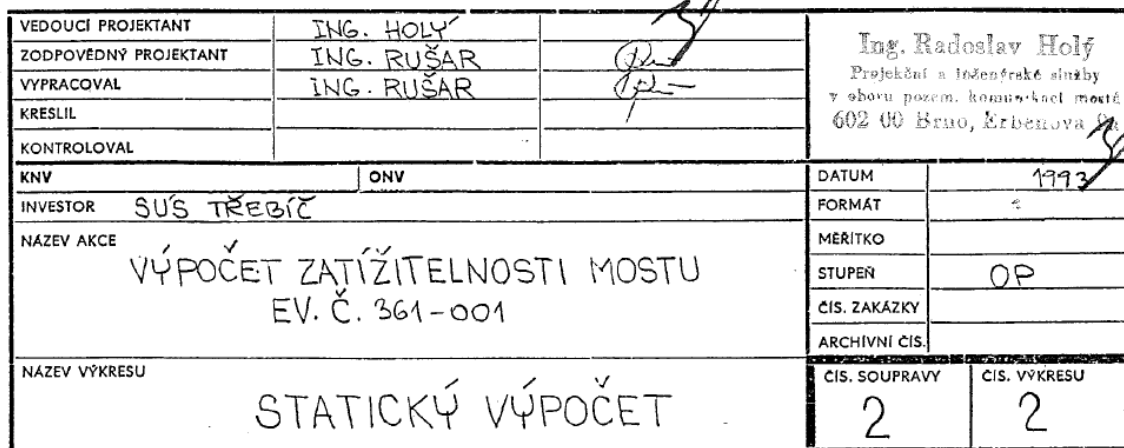 VEDOUCÍ PROJEKTANT ING. HOLÝ
ZODPOVĚDNÝ PROJEKTANT ING. RUŠAR
VYPRACOVAL ING. RUŠAR
KRESLIL
KONTROLOVAL
Ing. Radoslav Holý
Projekční a inženýrské služby
v oboru pozem. komunikací mostů
602 00 Brno, Erbenova 9a
KNV ONV
INVESTOR SÚS TŘEBÍČ
NÁZEV AKCE
VÝPOČET ZATÍŽITELNOSTI MOSTU
EV. Č. 361-001
DATUM 1993
FORMÁT
MĚŘÍTKO
STUPEŇ OP
ČÍS. ZAKÁZKY
ARCHÍVNÍ ČÍS.
NÁZEV VÝKRESU
STATICKÝ VÝPOČET
ČÍS. SOUPRAVY
2
ČÍS. VÝKRESU
2